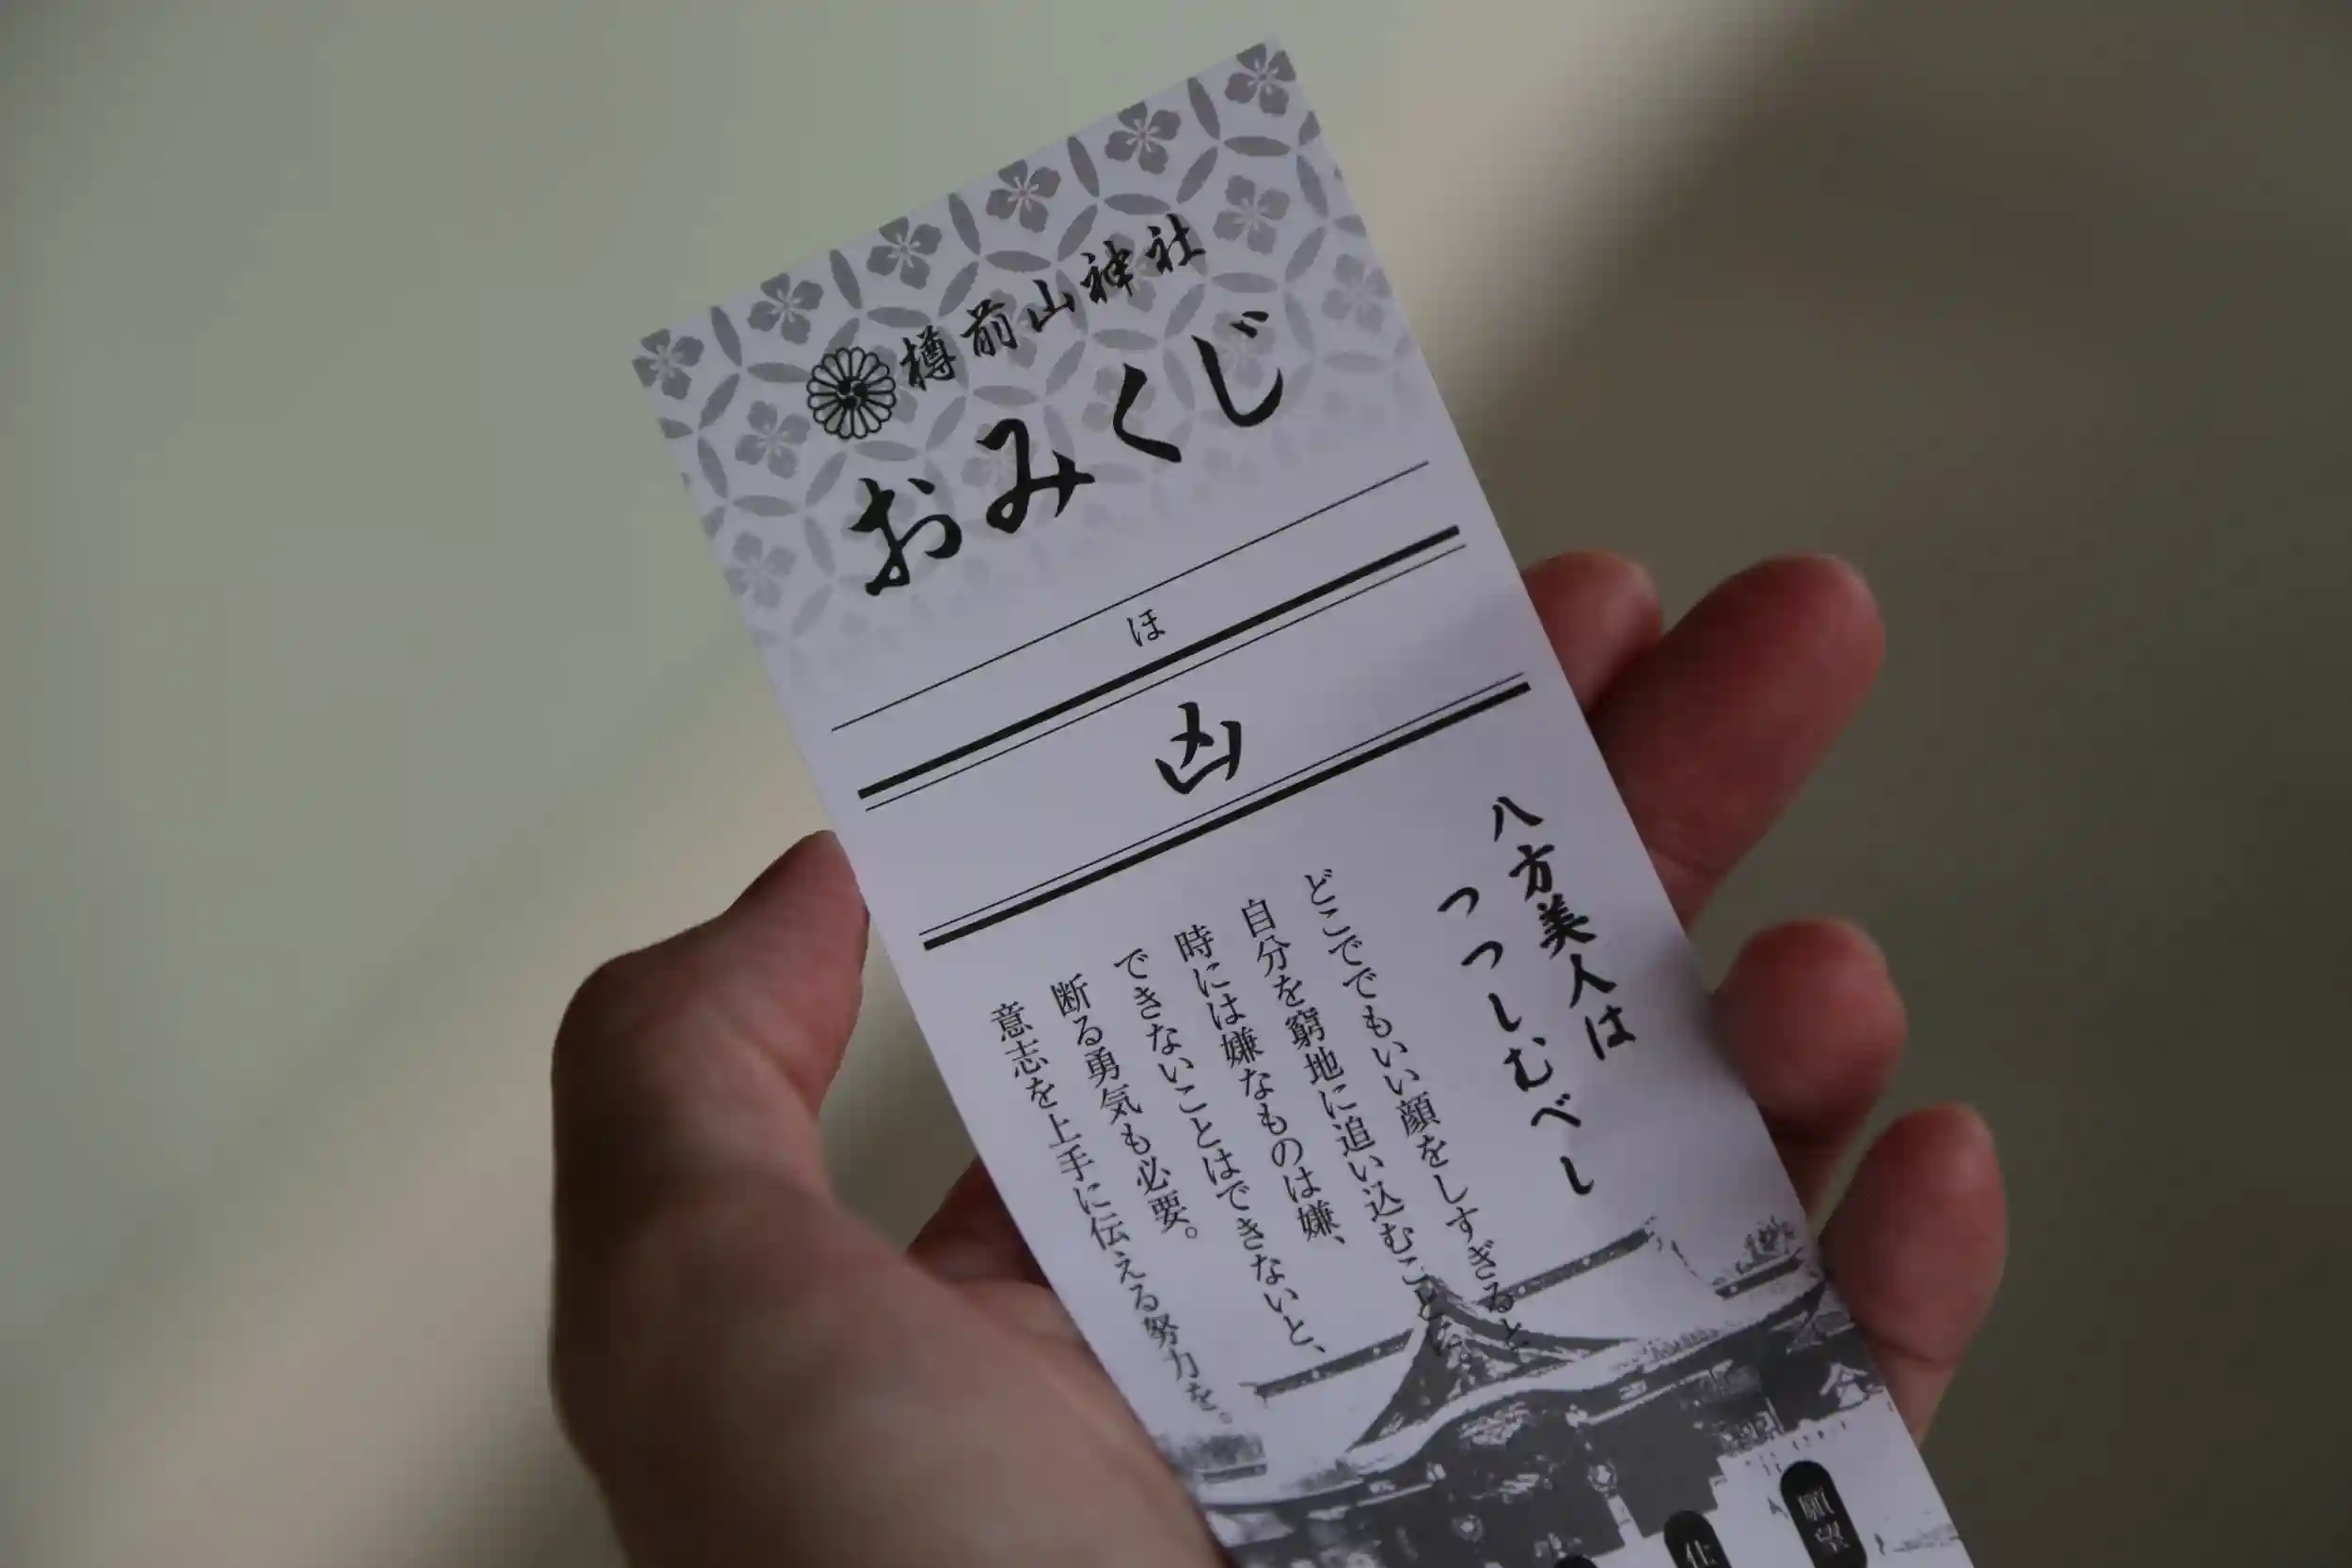 樽前山神社
おみくじ
ほ
凶
八方美人は
つつしむべし
どこででもいい顔をしすぎると
自分を窮地に追い込むことに。
時には嫌なものは嫌、
できないことはできないと、
断る勇気も必要。
意志を上手に伝える努力を。
願望
仕